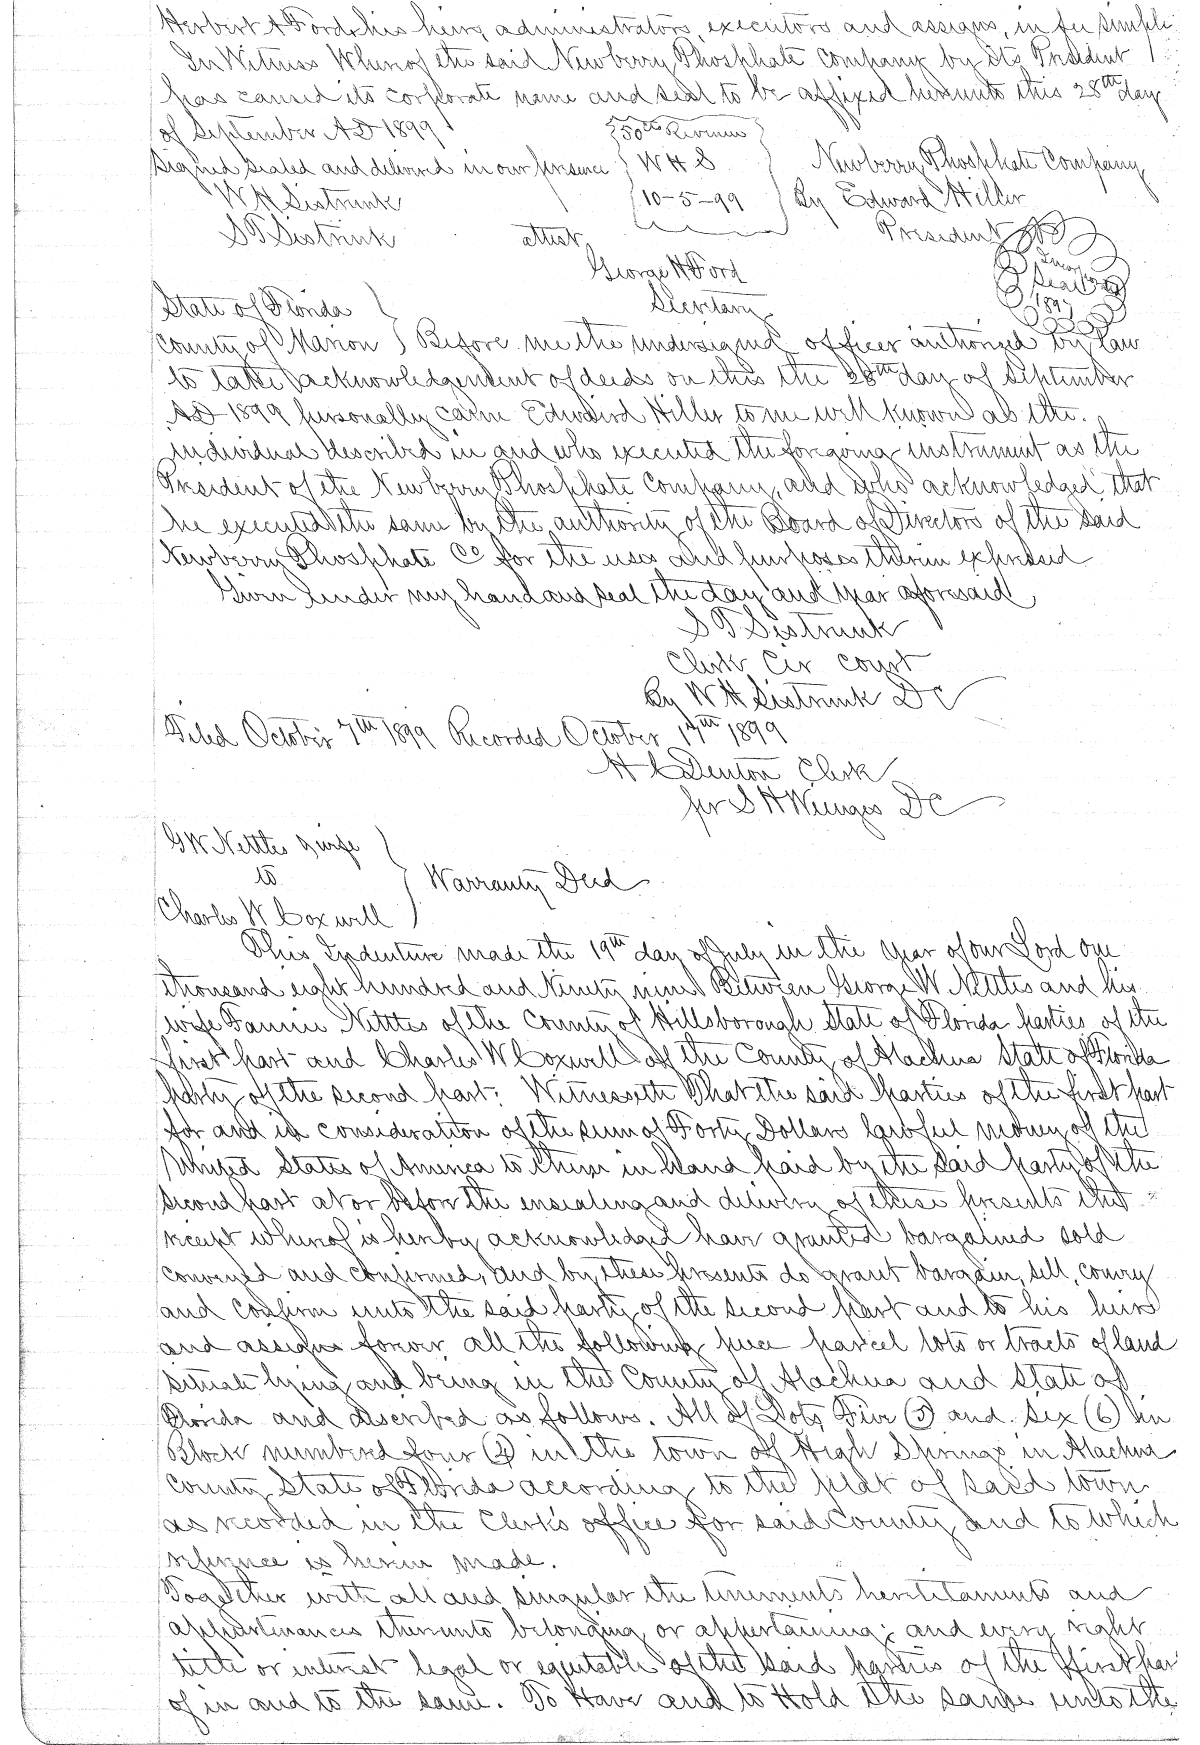 Herbert A Ford, his heirs, administrators, executors and assigns, in fee simple
In Witness Whereof the said Newberry Phosphate Company by its President
has caused its corporate name and seal to be affixed hereunto this 28th day
of September AD 1899
Signed sealed and delivered in our presence
W H Sistrunk
S T Sistrunk
50cts Revenue
W H S
10-5-99
Newberry Phosphate Company
By Edward Hiller
President
attest
George H Ford
Secretary
Incorporated
Seal
1897
State of Florida
County of Marion } Before me the undersigned officer authorized by law
to take acknowledgement of deeds on this the 28th day of September
AD 1899 personally came Edward Hiller to me well known as the
individual described in and who executed the foregoing instrument as the
President of the Newberry Phosphate Company, and who acknowledged that
he executed the same by the authority of the Board of Directors of the said
Newberry Phosphate Co for the uses and purposes therein expressed
Given under my hand and seal the day and year aforesaid
S T Sistrunk
Clerk Cir Court
By W H Sistrunk DC
Filed October 7th 1899 Recorded October 17th 1899
H C Denton Clerk
per S H Wienges DC
G W Nettles & wife
to
Charles W Coxwell
Warranty Deed
This Indenture made the 19th day of July in the year of our Lord one
thousand eight hundred and Ninety nine Between George W Nettles and his
wife Fannie Nettles of the County of Hillsborough State of Florida parties of the
first part and Charles W Coxwell of the County of Alachua State of Florida
party of the second part: Witnesseth That the said parties of the first part
for and in consideration of the sum of Forty Dollars lawful money of the
United States of America to them in hand paid by the said party of the
second part at or before the ensealing and delivery of these presents the
receipt whereof is hereby acknowledged have granted bargained sold
conveyed and confirmed, and by these presents do grant bargain, sell, convey
and confirm unto the said party of the second part and to his heirs
and assigns forever, all the following piece parcel lots or tracts of land
situate lying and being in the County of Alachua and State of
Florida and described as follows. All of Lots Five (5) and Six (6) in
Block numbered four (4) in the town of High Springs in Alachua
County State of Florida according to the plat of said town
as recorded in the Clerk's office for said County and to which
reference is herein made.
Together with all and singular the tenements heriditaments and
appurtenances thereunto belonging or appertaining; and every right
title or interest legal or equitable of the said parties of the first par
of in and to the same. To Have and to Hold the same unto the